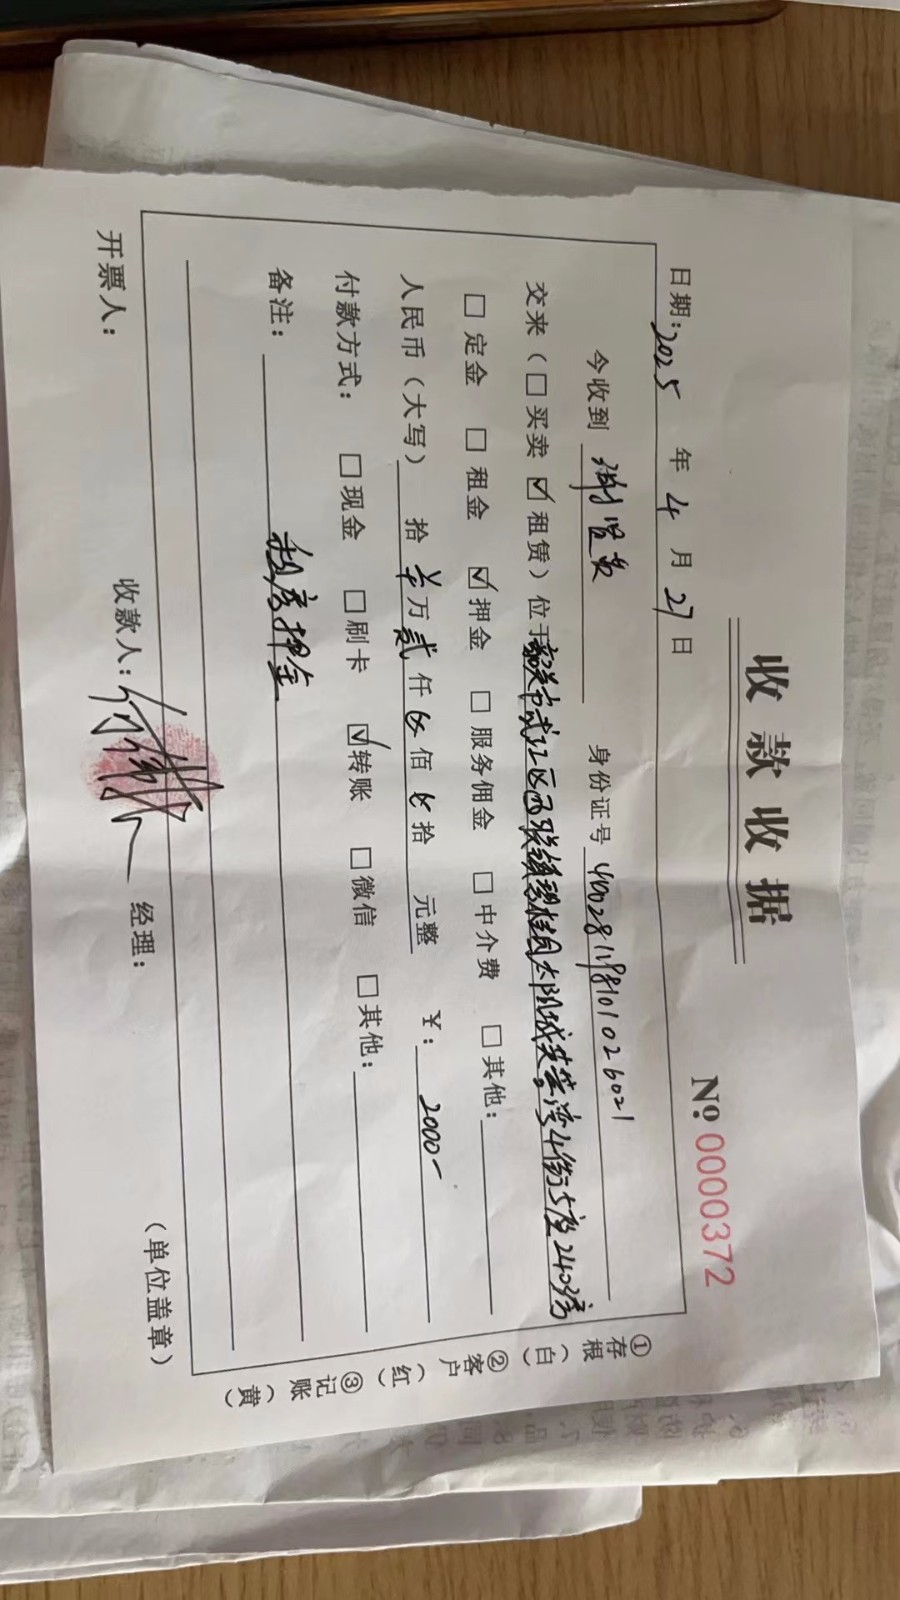 收款收据
№ 0000372
日期：2025 年 4 月 27 日
今收到 谢贤贵 身份证号 440281198101026021
交来（□买卖 ☑租赁）位于韶关市武江区西联镇碧桂园太阳城芙蓉湾4街5座2403房
□定金 □租金 ☑押金 □服务佣金 □中介费 □其他：
人民币（大写） 拾 ¥ 万 贰 仟 佰 拾 元整 ¥： 2000-
付款方式： □现金 □刷卡 ☑转账 □微信 □其他：
备注： 租房押金
开票人： 收款人： 经理： （单位盖章）
①存根（白） ②客户（红） ③记账（黄）